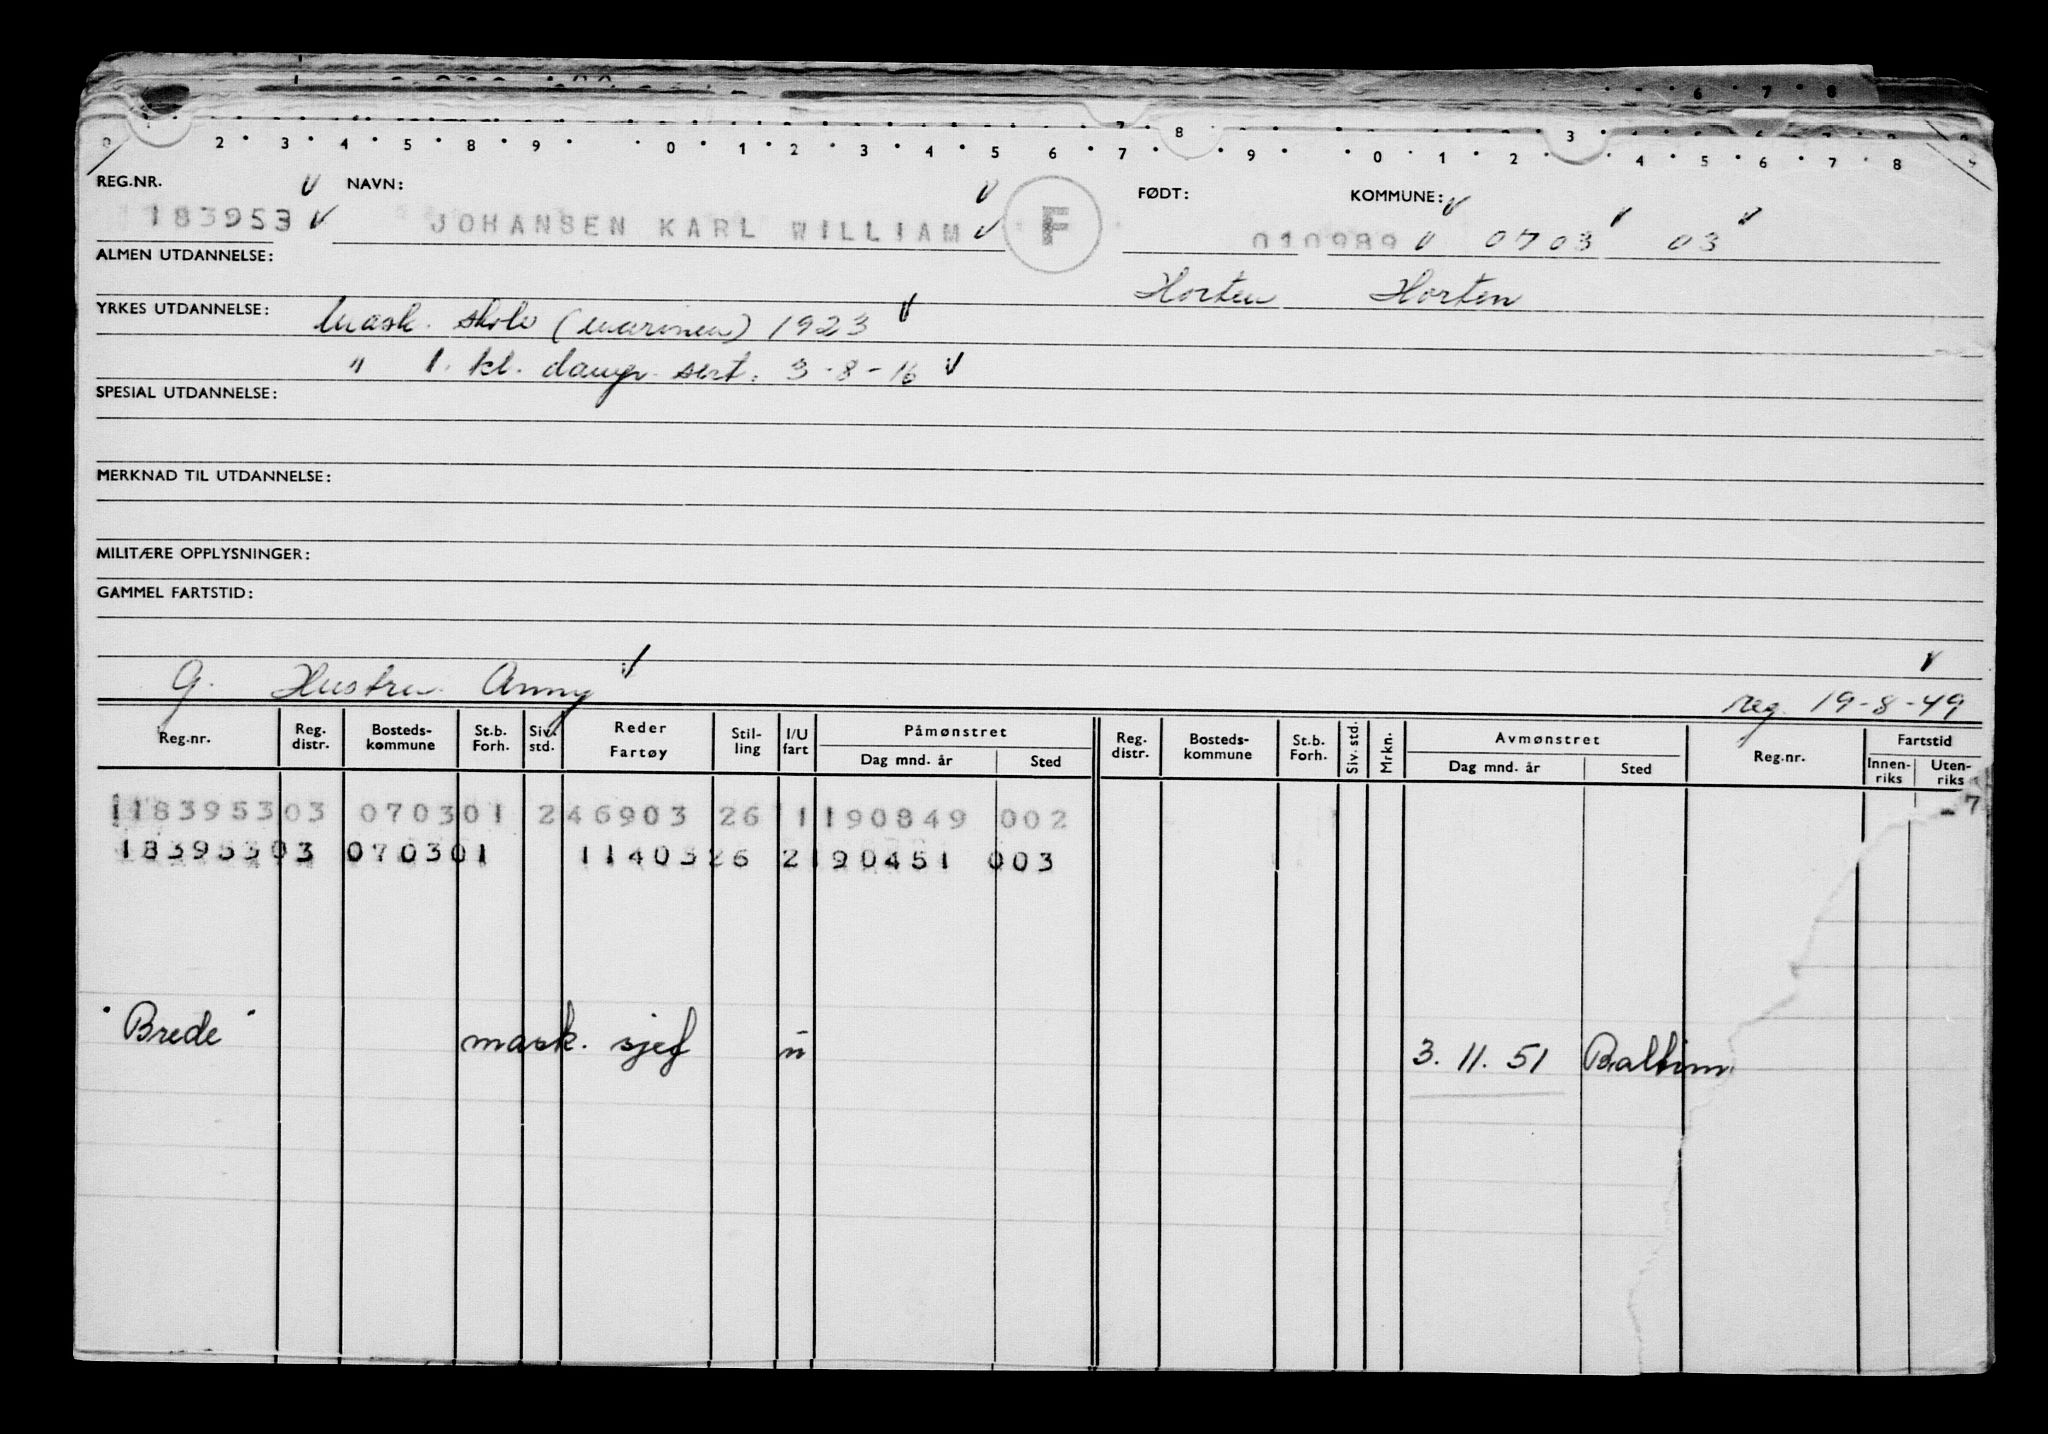 2 · 3 · 4 · 5 · 8 · 9 · · 0 · 1 · 2 · 3 · 4 · 5 6 · 7 · 8 · 9 · · 0 · 1 · 2 · 3 · 4 · 5 · 6 · 7 · 8
REG.NR. NAVN: FØDT: KOMMUNE:
183953 JOHANSEN KARL WILLIAM F 010989 0703 03
ALMEN UTDANNELSE: Horten Horten
YRKES UTDANNELSE: Mask. skole (marinen) 1923
" 1. kl. damp. sert. 3-8-16
SPESIAL UTDANNELSE:
MERKNAD TIL UTDANNELSE:
MILITÆRE OPPLYSNINGER:
GAMMEL FARTSTID:
G. Hustru Anny reg. 19-8-49
Reg.nr. Reg. distr. Bosteds-kommune St.b. Forh. Siv. std. Reder Fartøy Stil-ling I/U fart Påmønstret Dag mnd. år Sted Reg. distr. Bosteds-kommune St.b. Forh. Siv. std. Mrkn. Avmønstret Dag mnd. år Sted Reg.nr. Fartstid Innen-riks Uten-riks
118395303 070301 246903 26 1190849 002
18395303 070301 1140326 2190451 003
"Brede" mask. sjef u 3. 11. 51 Baltim